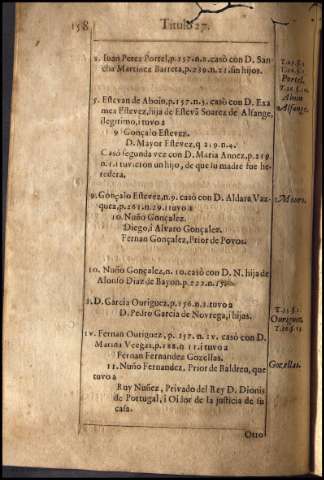 158. Titulo 27.
2. Iuan Perez Portel, p.257.n.2. casò con D. San-
cha Martinez Barreta, p.230.n.21. sin hijos.
5. Estevan de Aboin, p.157.n.5. casò con D. Exa
mea Estevez, hija de Estevã Soarez de Alfange,
ilegitimo, i tuvo a
9 Gonçalo Estevez.
D. Mayor Estevez, q 219. n. 4.
Casó segunda vez con D. Maria Annez, p.219
n.1. i tuvieron un hijo, de que lu madre fue he-
redera.
9. Gonçalo Estevez, n.9. casó con D. Aldara Vaz-
quez, p.261.n.29. i tuvo a
10. Nuño Gonçalez.
Diego, i Alvaro Gonçalez.
Fernan Gonçalez, Prior de Poyos.
10. Nuño Gonçalez, n. 10. casò con D. N. hija de
Alonso Diaz de Bayon. p.222.n.15.
2. D. Garcia Ouriguez, p.156.n.2. tuvo a
D. Pedro Garcia de Novrega, i hijos.
iv. Fernan Ouriguez, p. 157. n. iv. casó con D.
Marina Veegas, p.188. n 11. i tuvo a
Fernan Fernandez Gozellas.
11. Nuño Fernandez, Prior de Baldreu, que
tuvo a
Ruy Nuñez, Privado del Rey D. Dionis
de Portugal, i Oidor de la justicia de su
casa.
Otto
Portel.
Aboin
Alfange.
Ouriguez.
Gozellas.